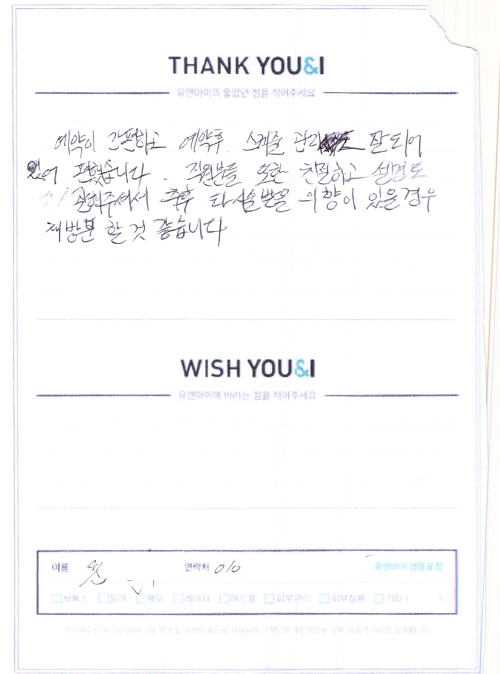 THANK YOU&I
유앤아이의 좋았던 점을 적어주세요
예약이 간편하고 예약후 스케줄 관리도 잘되어
있어 편했습니다. 직원분들 또한 친절하고 설명도
잘해주셔서 추후 타시술받을 의향이 있을경우
재방문 할 것 같습니다
WISH YOU&I
유앤아이에 바라는 점을 적어주세요
이름 연락처 010 유앤아이
보톡스 필러 제모 레이저 여드름 피부관리 피부질환 기타 ( )